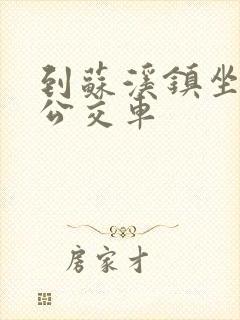 到蘇溪鎮坐
公交車
房家才